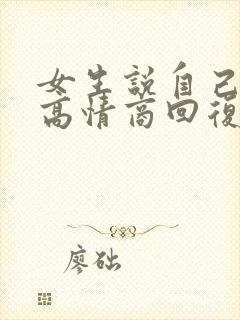 女生說自己
高情商回復
廖础